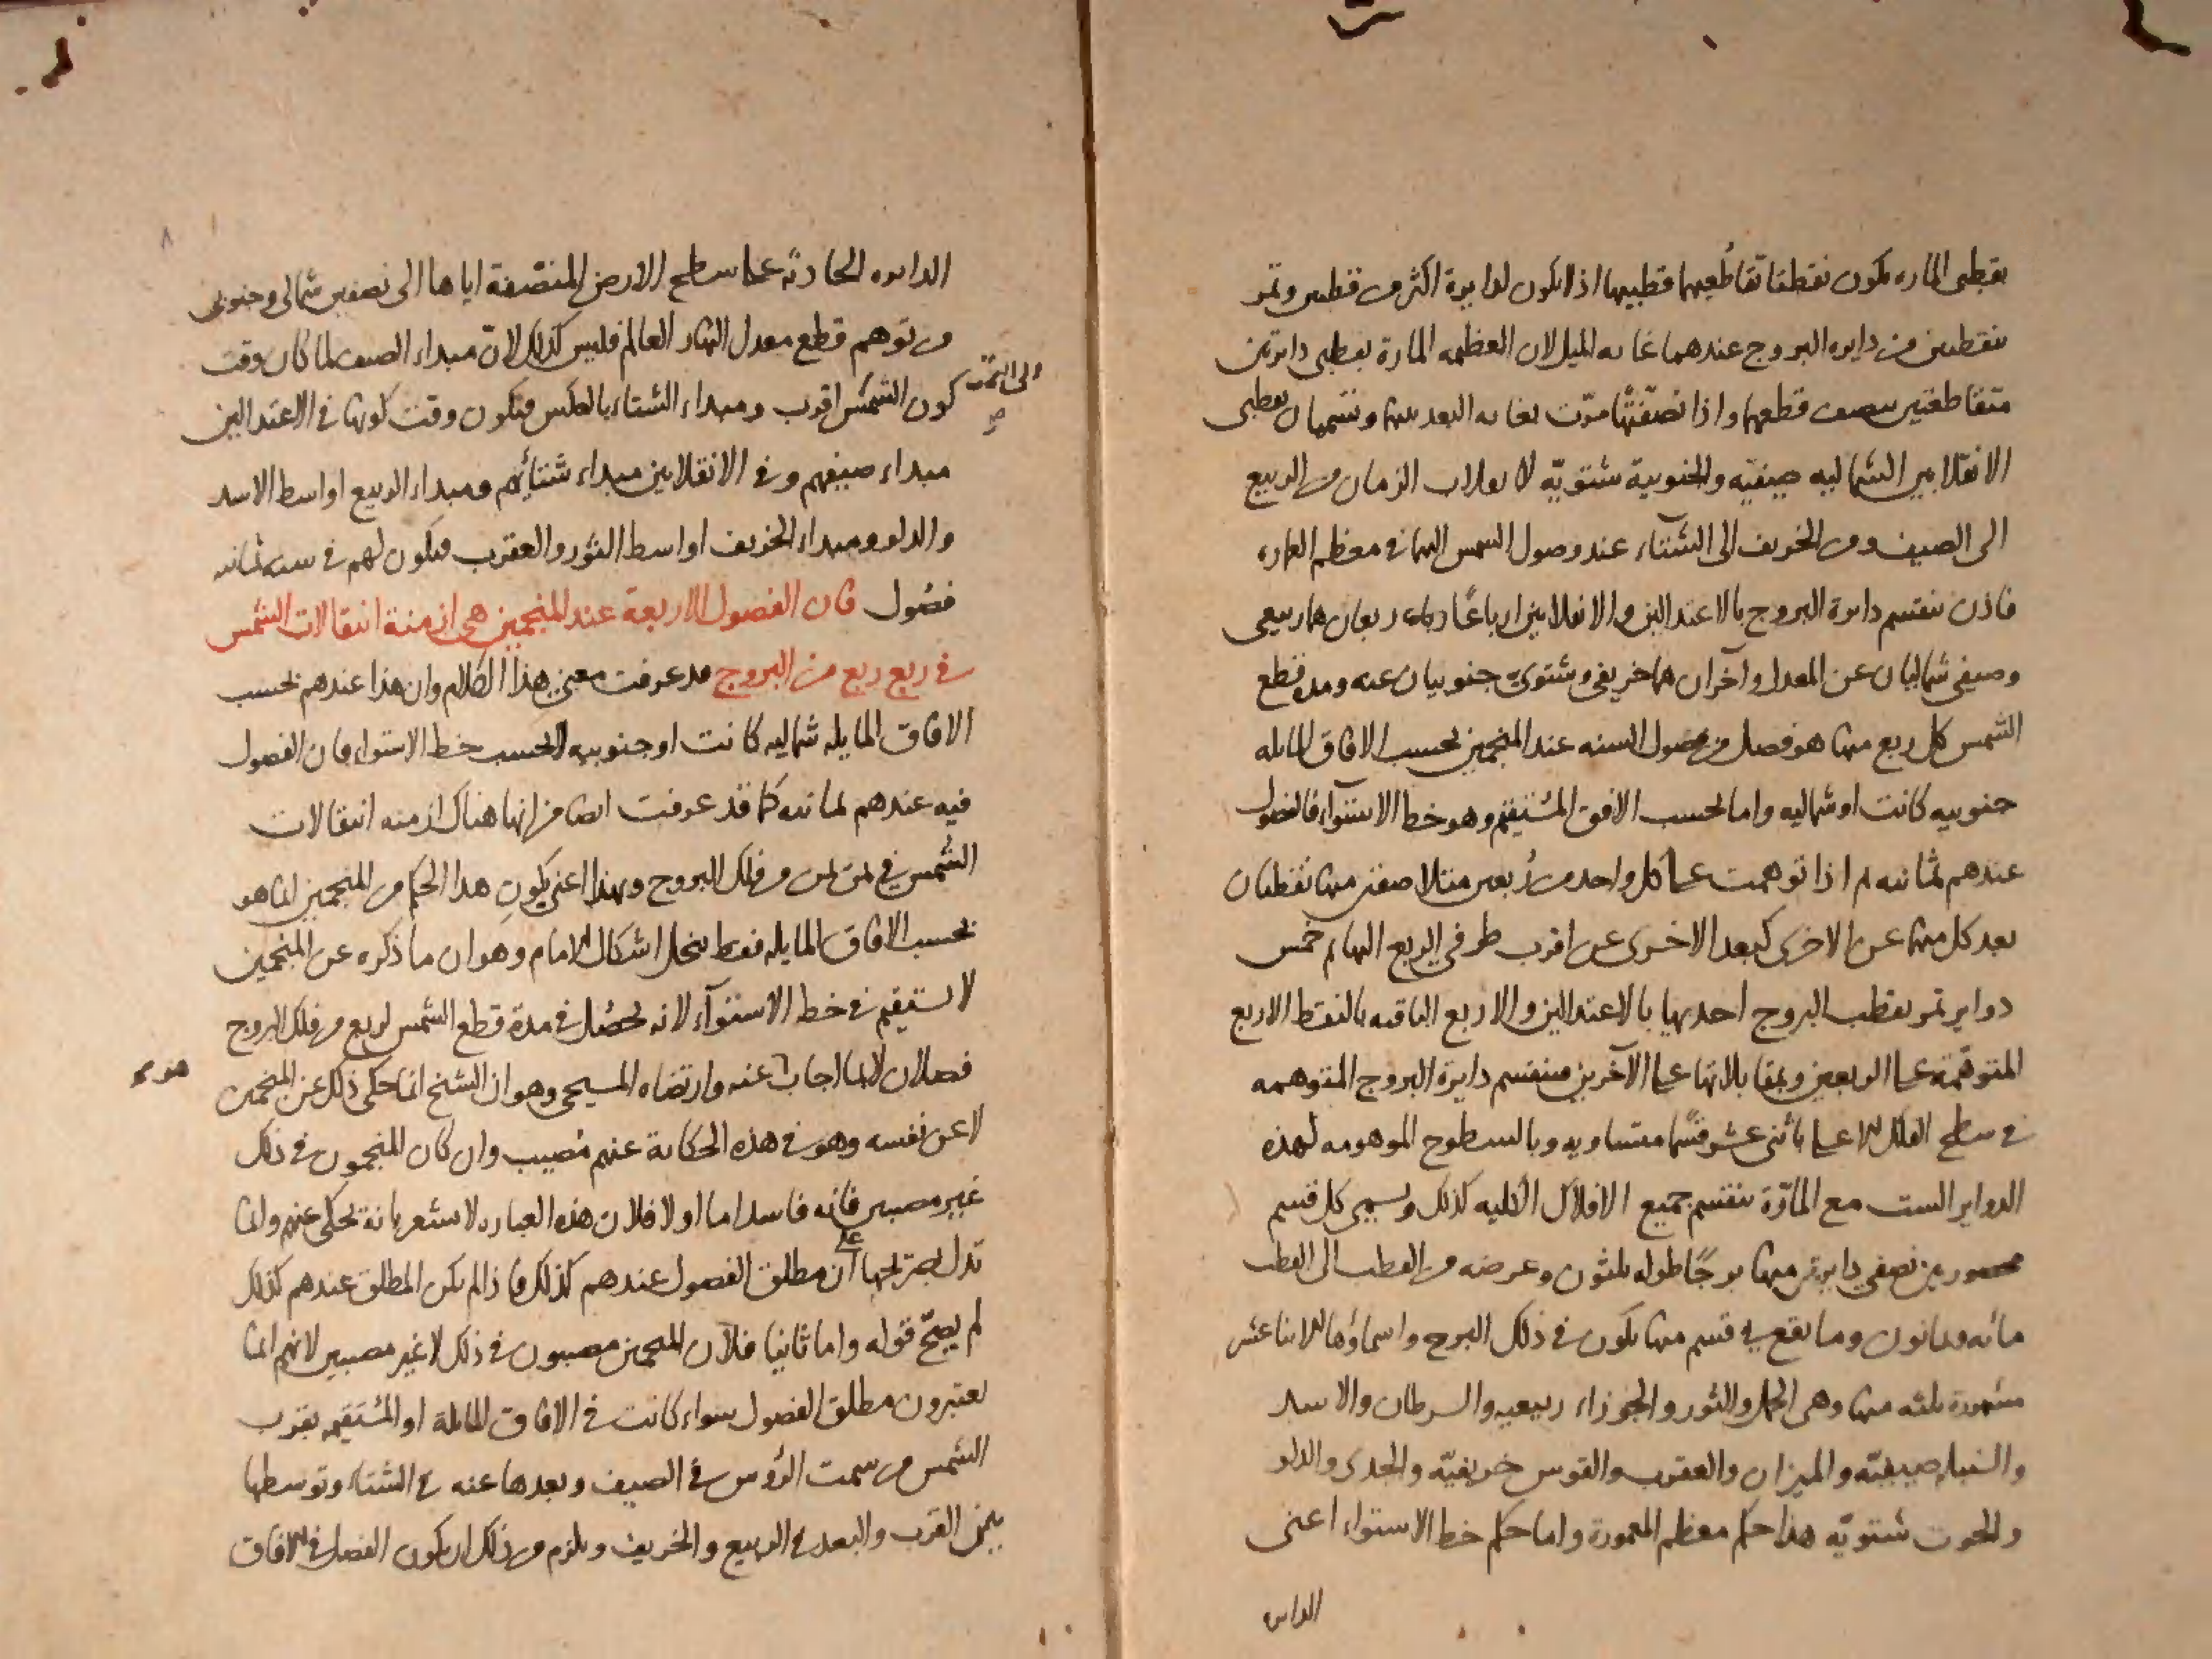 بقطبى الماره يكون نقطتا تقاطعهما قطبيها اذ لا يكون لدايرة اكثر من قطبين وتمر
بنقطتين من دايره البروج عندهما غايه الميل لان العظيمه المارة بقطبى دايرتين
متقاطعتين تنصف قطعهما واذا نصّفتها مرّت بغايه البعد بينهما وتسميان بنقطتى
الانقلابين الشماليه صيفيّه والجنوبية شتويّه لانقلاب الزمان من الربيع
الى الصيف ومن الخريف الى الشتاء عند وصول الشمس اليهما فى معظم العماره
فاذن تنقسم دايرة البروج بالاعتدالين والانقلابين ارباعًا ربعان هما ربيعى
وصيفى شماليان عن المعدل وآخران هما خريفى وشتوى جنوبيان عنه ومدة قطع
الشمس كل ربع منها هو فصل من فصول السنه عند المنجمين بحسب الافاق المايله
جنوبيه كانت او شماليه واما بحسب الافق المستقيم وهو خط الاستواء فالفصول
عندهم ثمانيه ثم اذا توهمت على كل واحد من ربعين متلاصقين منها نقطتان
بعد كل منهما عن الاخرى كبعد الاخرى عن اقرب طرفى الربع اليها ثم خمس
دواير تمر بقطب البروج احديها بالاعتدالين والاربع الباقيه بالنقط الاربع
المتوهّمة على الربعين وبمقابلاتها على الآخرين فتنقسم دايرة البروج المتوهمه
فى سطح الفلك الاعلى باثنى عشر قسمًا متساويه وبالسطوح الموهومه لهذه
الدواير الست مع المارّة تنقسم جميع الافلاك الكليه كذلك ويسمى كل قسم
محصور بين نصفى دايرتين منها برجًا طوله ثلثون وعرضه من القطب الى القطب
مائه وثمانون وما يقع فى قسم منها يكون فى ذلك البرج واسماؤها الاثنا عشر
مشهورة ثلثه منها وهى الحمل والثور والجوزاء ربيعيه والسرطان والاسد
والسنبله صيفيّه والميزان والعقرب والقوس خريفيّه والجدى والدلو
والحوت شتويّه هذا حكم معظم المعمورة واما حكم خط الاستواء اعنى
الدايره
الدايره الحادثه على سطح الارض المنتصّفة اياها الى نصفين شمالى وجنوبى
من توهم قطع معدل النهار العالم فليس كذلك لانّ مبداء الصيف لما كان وقت
كون الشمس اقرب ومبداء الشتاء بالعكس فيكون وقت كونها فى الاعتدالين
الى السمت
صح
مبداء صيفهم وفى الانقلابين مبداء شتائهم ومبداء الربيع اواسط الاسد
والدلو ومبداء الخريف اواسط الثور والعقرب فيكون لهم فى سنه ثمانيه
فصُول قان الفصول الاربعة عند المنجمين هى ازمنة انتقالات الشمس
فى ربع ربع من البروج قد عرفت معنى هذا الكلام وان هذا عندهم بحسب
الافاق المايله شماليه كانت او جنوبيه لا بحسب خط الاستواء فان الفصول
فيه عندهم ثمانيه كما قد عرفت ايضا من انها هناك ازمنه انتقالات
الشمس فى ثمن ثمن من فلك البروج وبهذا اعنى بكونِ هذا الحكم من المنجمين انما هو
بحسب الافاق المايله فقط ينحل اشكال الامام وهو ان ما ذكره عن المنجمين
لا يستقيم فى خط الاستوآء لانه يحصُل فى مدة قطع الشمس لربع من فلك البروج
فصلان لا بما اجاب عنه وارتضاه المسيحى وهو ان الشيخ انما حكى ذلك عن المنجمين
لا عن نفسه وهو فى هذه الحكاية عنهم مُصيب وان كان المنجمون فى ذلك
غير مصيبين فانه فاسد اما اولا فلان هذه العباره لا تشعر بانهٔ يحكى عنهم وانما
تدل بصريحها على ان مطلق الفصول عندهم كذلك فاذا لم يكن المطلق عندهم كذلك
لم يصحّ قوله واما ثانيا فلان المنجمين مصيبون فى ذلك لا غير مصيبين لانهم انما
يعتبرون مطلق الفصول سواء كانت فى الافاق المايلة او المستقيمه بقرب
الشمس من سمت الرؤس فى الصيف وبعدها عنه فى الشتاء وتوسطها
بين القرب والبعد فى الربيع والخريف ويلزم من ذلك ان يكون الفصل فى الافاق